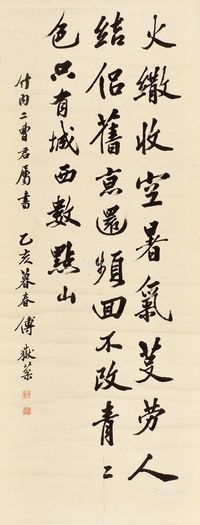 火繖收空暑氣芟勞人
結侶舊京還頻回不改青〻
色只有城西數點山
付丙二曹君屬書 乙亥暮春傅嶽棻